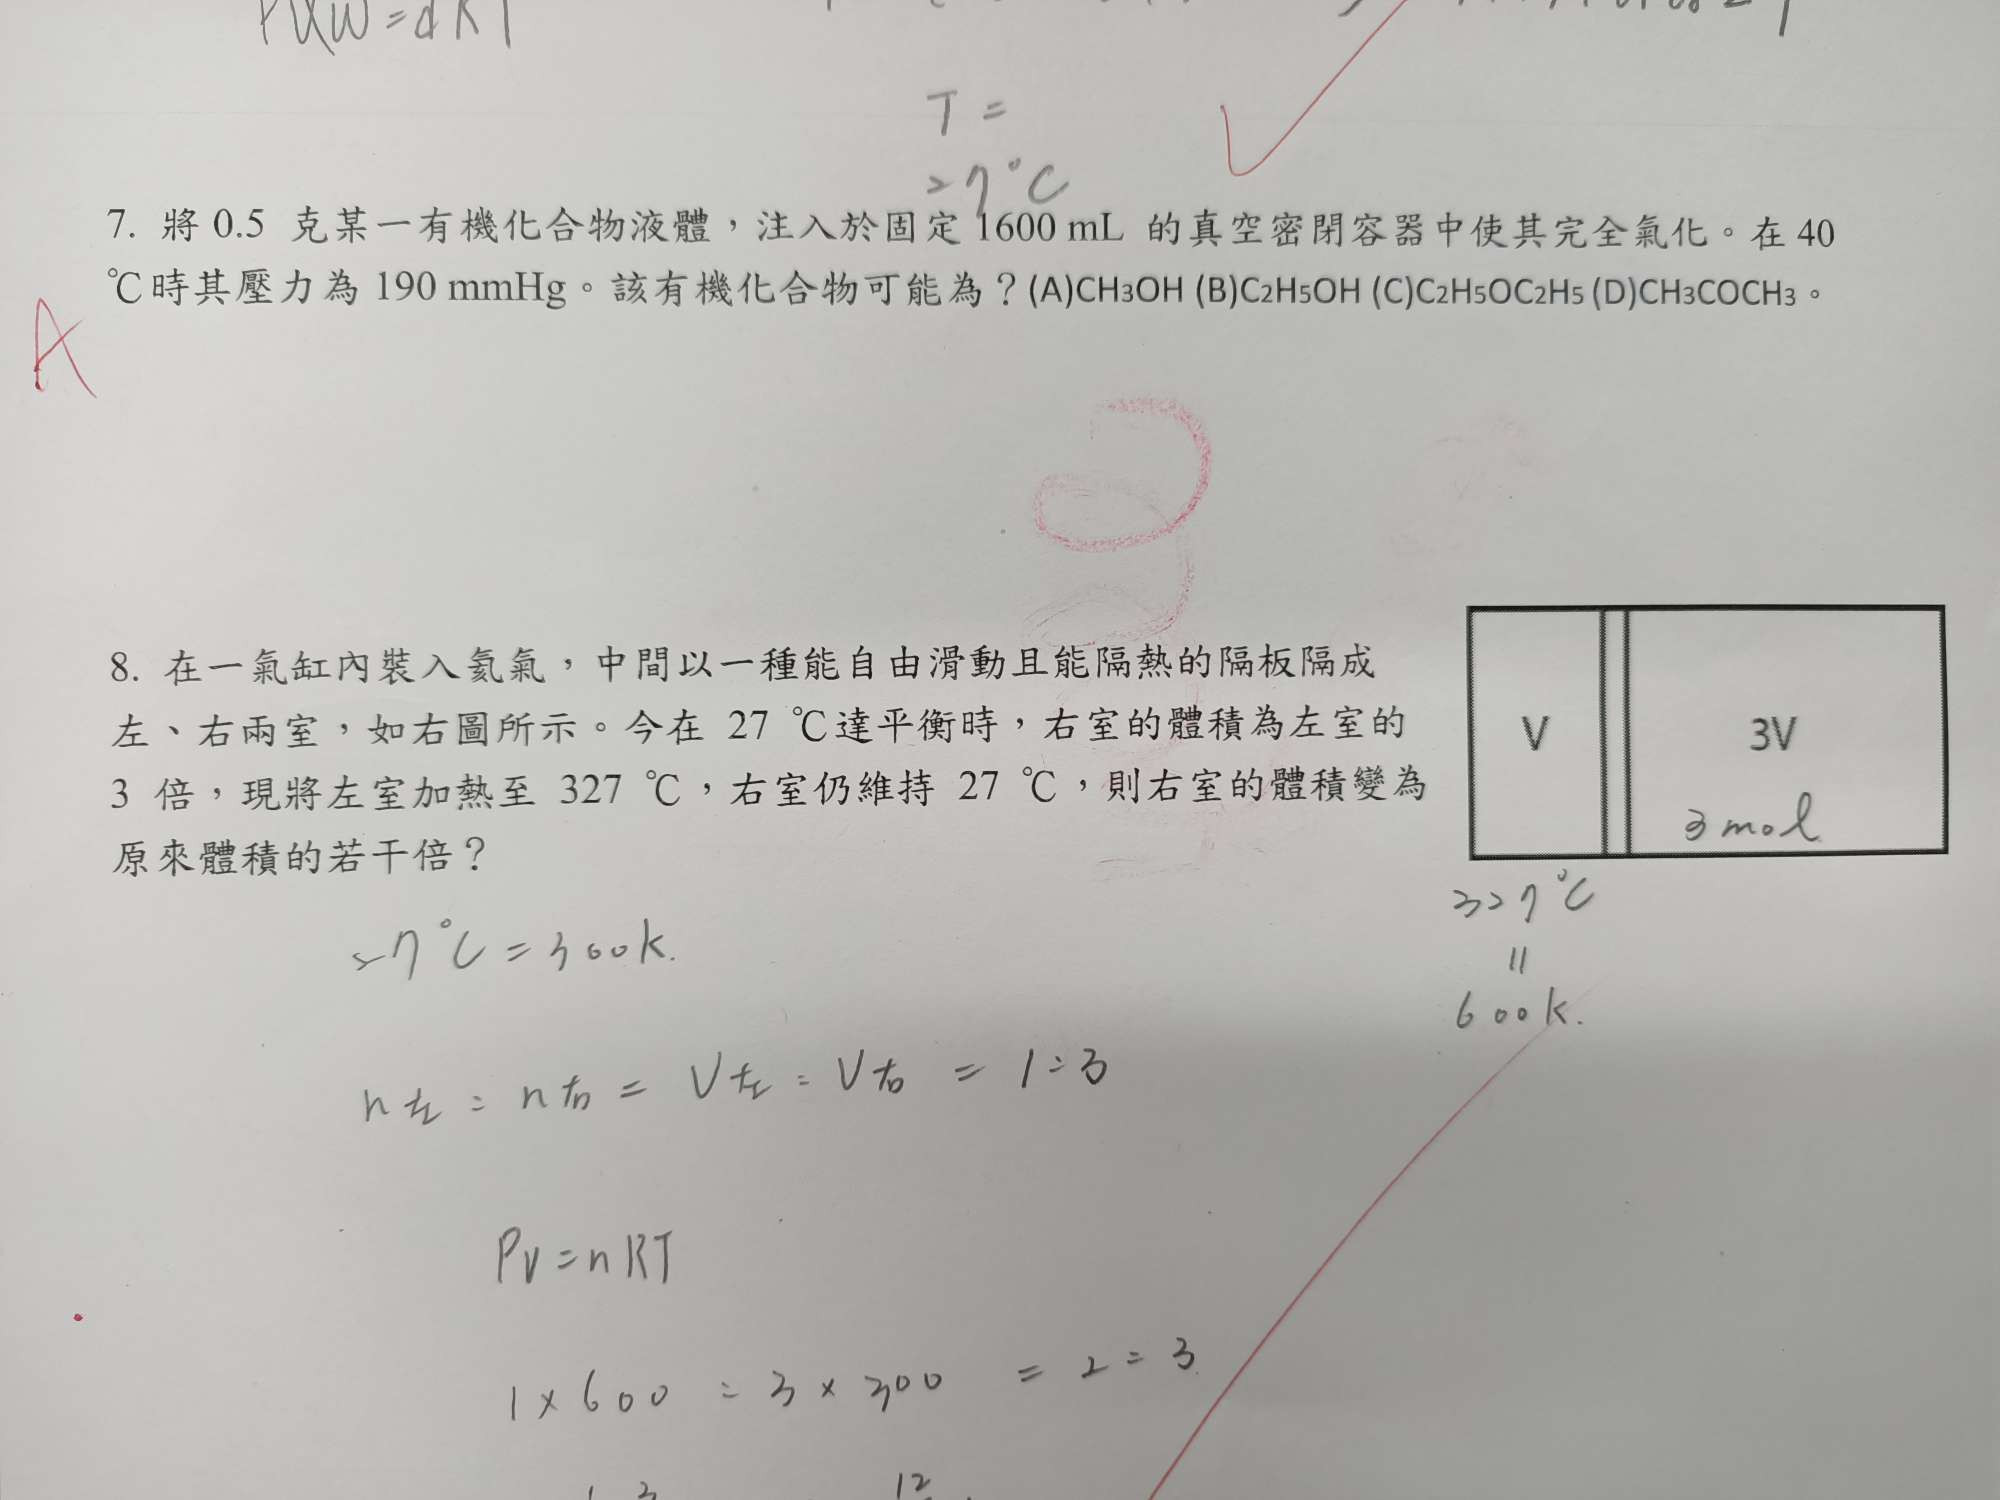 PMw=dRT
T=
27°C
7. 將 0.5 克某一有機化合物液體，注入於固定 1600 mL 的真空密閉容器中使其完全氣化。在 40
℃時其壓力為 190 mmHg。該有機化合物可能為？(A)CH3OH (B)C2H5OH (C)C2H5OC2H5 (D)CH3COCH3。
A
8. 在一氣缸內裝入氦氣，中間以一種能自由滑動且能隔熱的隔板隔成
左、右兩室，如右圖所示。今在 27 ℃達平衡時，右室的體積為左室的
3 倍，現將左室加熱至 327 ℃，右室仍維持 27 ℃，則右室的體積變為
原來體積的若干倍？
V
3V
3mol
327°C
=
600k.
27°C=300k.
n左:n右=V左:V右=1:3
PV=nRT
1×600:3×300=2:3